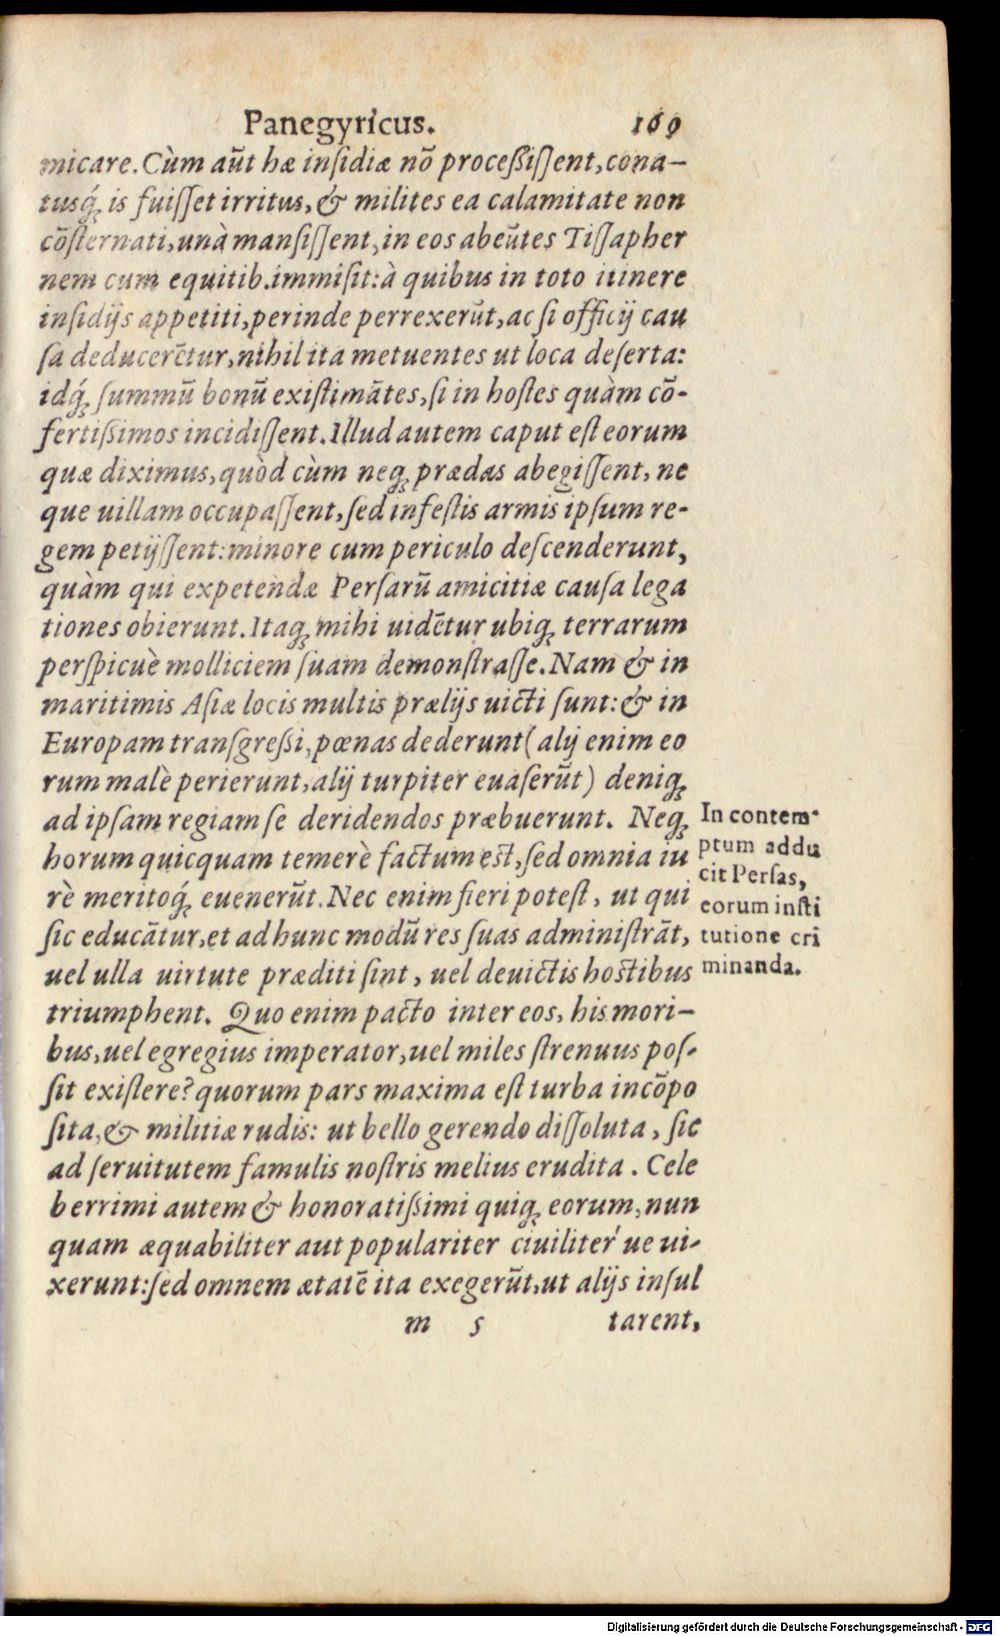 Panegyricus. 169
micare. Cùm aūt hæ inſidiæ nō proceßiſſent, cona-
tusq́ꝫ is fuiſſet irritus, & milites ea calamitate non
cōſternati, unà manſiſſent, in eos abeūtes Tiſſapher
nem cum equitib. immiſit: à quibus in toto itinere
inſidijs appetiti, perinde perrexerūt, ac ſi officij cau
ſa deducerētur, nihil ita metuentes ut loca deſerta:
idq́ꝫ ſummū bonū exiſtimātes, ſi in hoſtes quàm cō-
fertißimos incidiſſent. Illud autem caput eſt eorum
quæ diximus, quòd cùm neqꝫ prædas abegiſſent, ne
que uillam occupaſſent, ſed infeſtis armis ipſum re-
gem petijſſent: minore cum periculo deſcenderunt,
quàm qui expetendæ Perſarū amicitiæ cauſa lega
tiones obierunt. Itaqꝫ mihi uidētur ubiqꝫ terrarum
perſpicuè molliciem ſuam demonſtraſſe. Nam & in
maritimis Aſiæ locis multis prælijs uicti ſunt: & in
Europam tranſgreßi, pœnas dederunt (alij enim eo
rum malè perierunt, alij turpiter euaſerūt) deniqꝫ
ad ipſam regiam ſe deridendos præbuerunt. Neqꝫ
horum quicquam temerè factum est, ſed omnia iu
rè meritoq́ꝫ euenerūt. Nec enim fieri poteſt, ut qui
ſic educātur, et ad hunc modū res ſuas adminiſtrāt,
uel ulla uirtute præditi ſint, uel deuictis hostibus
triumphent. Quo enim pacto inter eos, his mori-
bus, uel egregius imperator, uel miles ſtrenuus poſ-
ſit exiſtere? quorum pars maxima eſt turba incōpo
ſita, & militiæ rudis: ut bello gerendo diſſoluta, ſic
ad ſeruitutem famulis noſtris melius erudita. Cele
berrimi autem & honoratißimi quiqꝫ eorum, nun
quam æquabiliter aut populariter ciuiliteŕ ue ui-
xerunt: ſed omnem ætatē ita exegerūt, ut alijs inſul
m 5 tarent,
In contem-
ptum addu
cit Perſas,
eorum inſti
tutione cri
minanda.
Digitalisierung gefördert durch die Deutsche Forschungsgemeinschaft - DFG